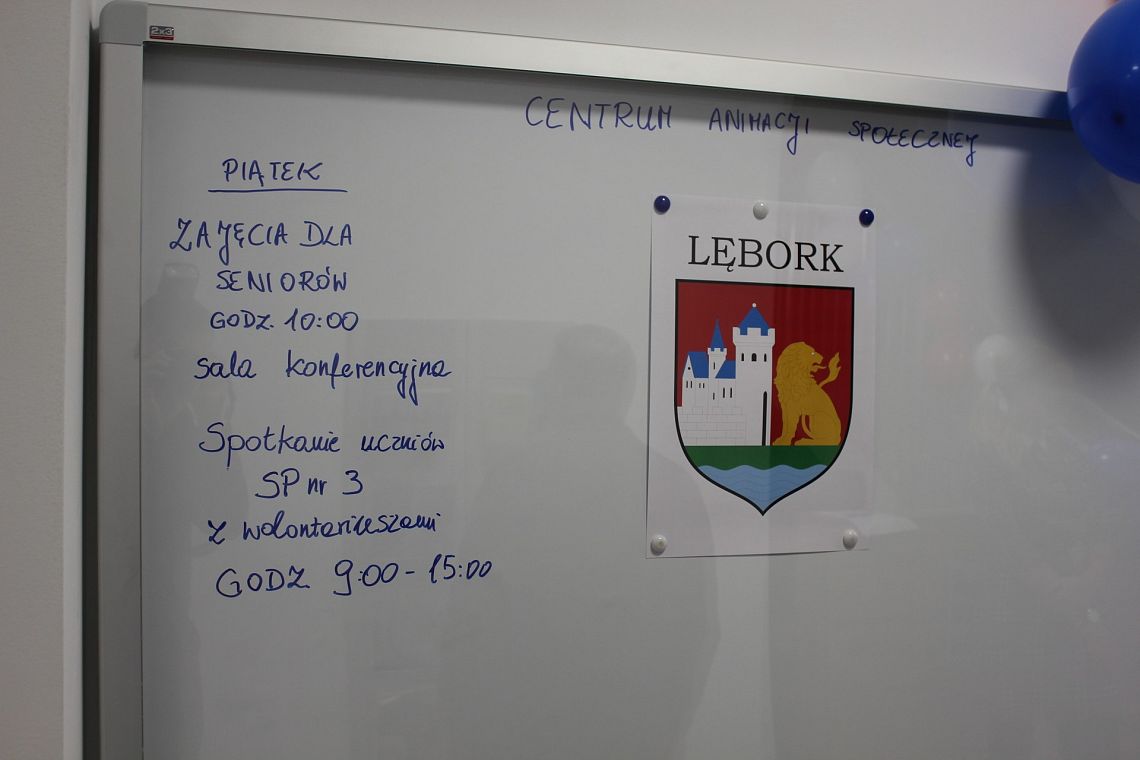 2x3
CENTRUM ANIMACJI SPOŁECZNEJ
PIĄTEK
ZAJĘCIA DLA
SENIORÓW
GODZ. 10:00
sala konferencyjna
Spotkanie uczniów
SP nr 3
z wolontariuszami
GODZ 9:00 - 15:00
LĘBORK